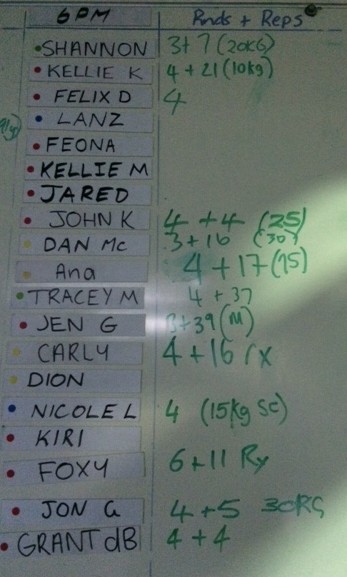 6PM Rnds + Reps
SHANNON 3+7 (20KG)
KELLIE K 4+21 (10kg)
FELIX D 4
LANZ
FEONA
KELLIE M
JARED
JOHN K 4+4 (25)
DAN Mc 3+16 (30)
Ana 4+17 (15)
TRACEY M 4+37
JEN G 3+39 (M)
CARLY 4+16 rx
DION
NICOLE L 4 (15kg SC)
KIRI
FOXY 6+11 Rx
JON G 4+5 30KG
GRANT dB 4+4